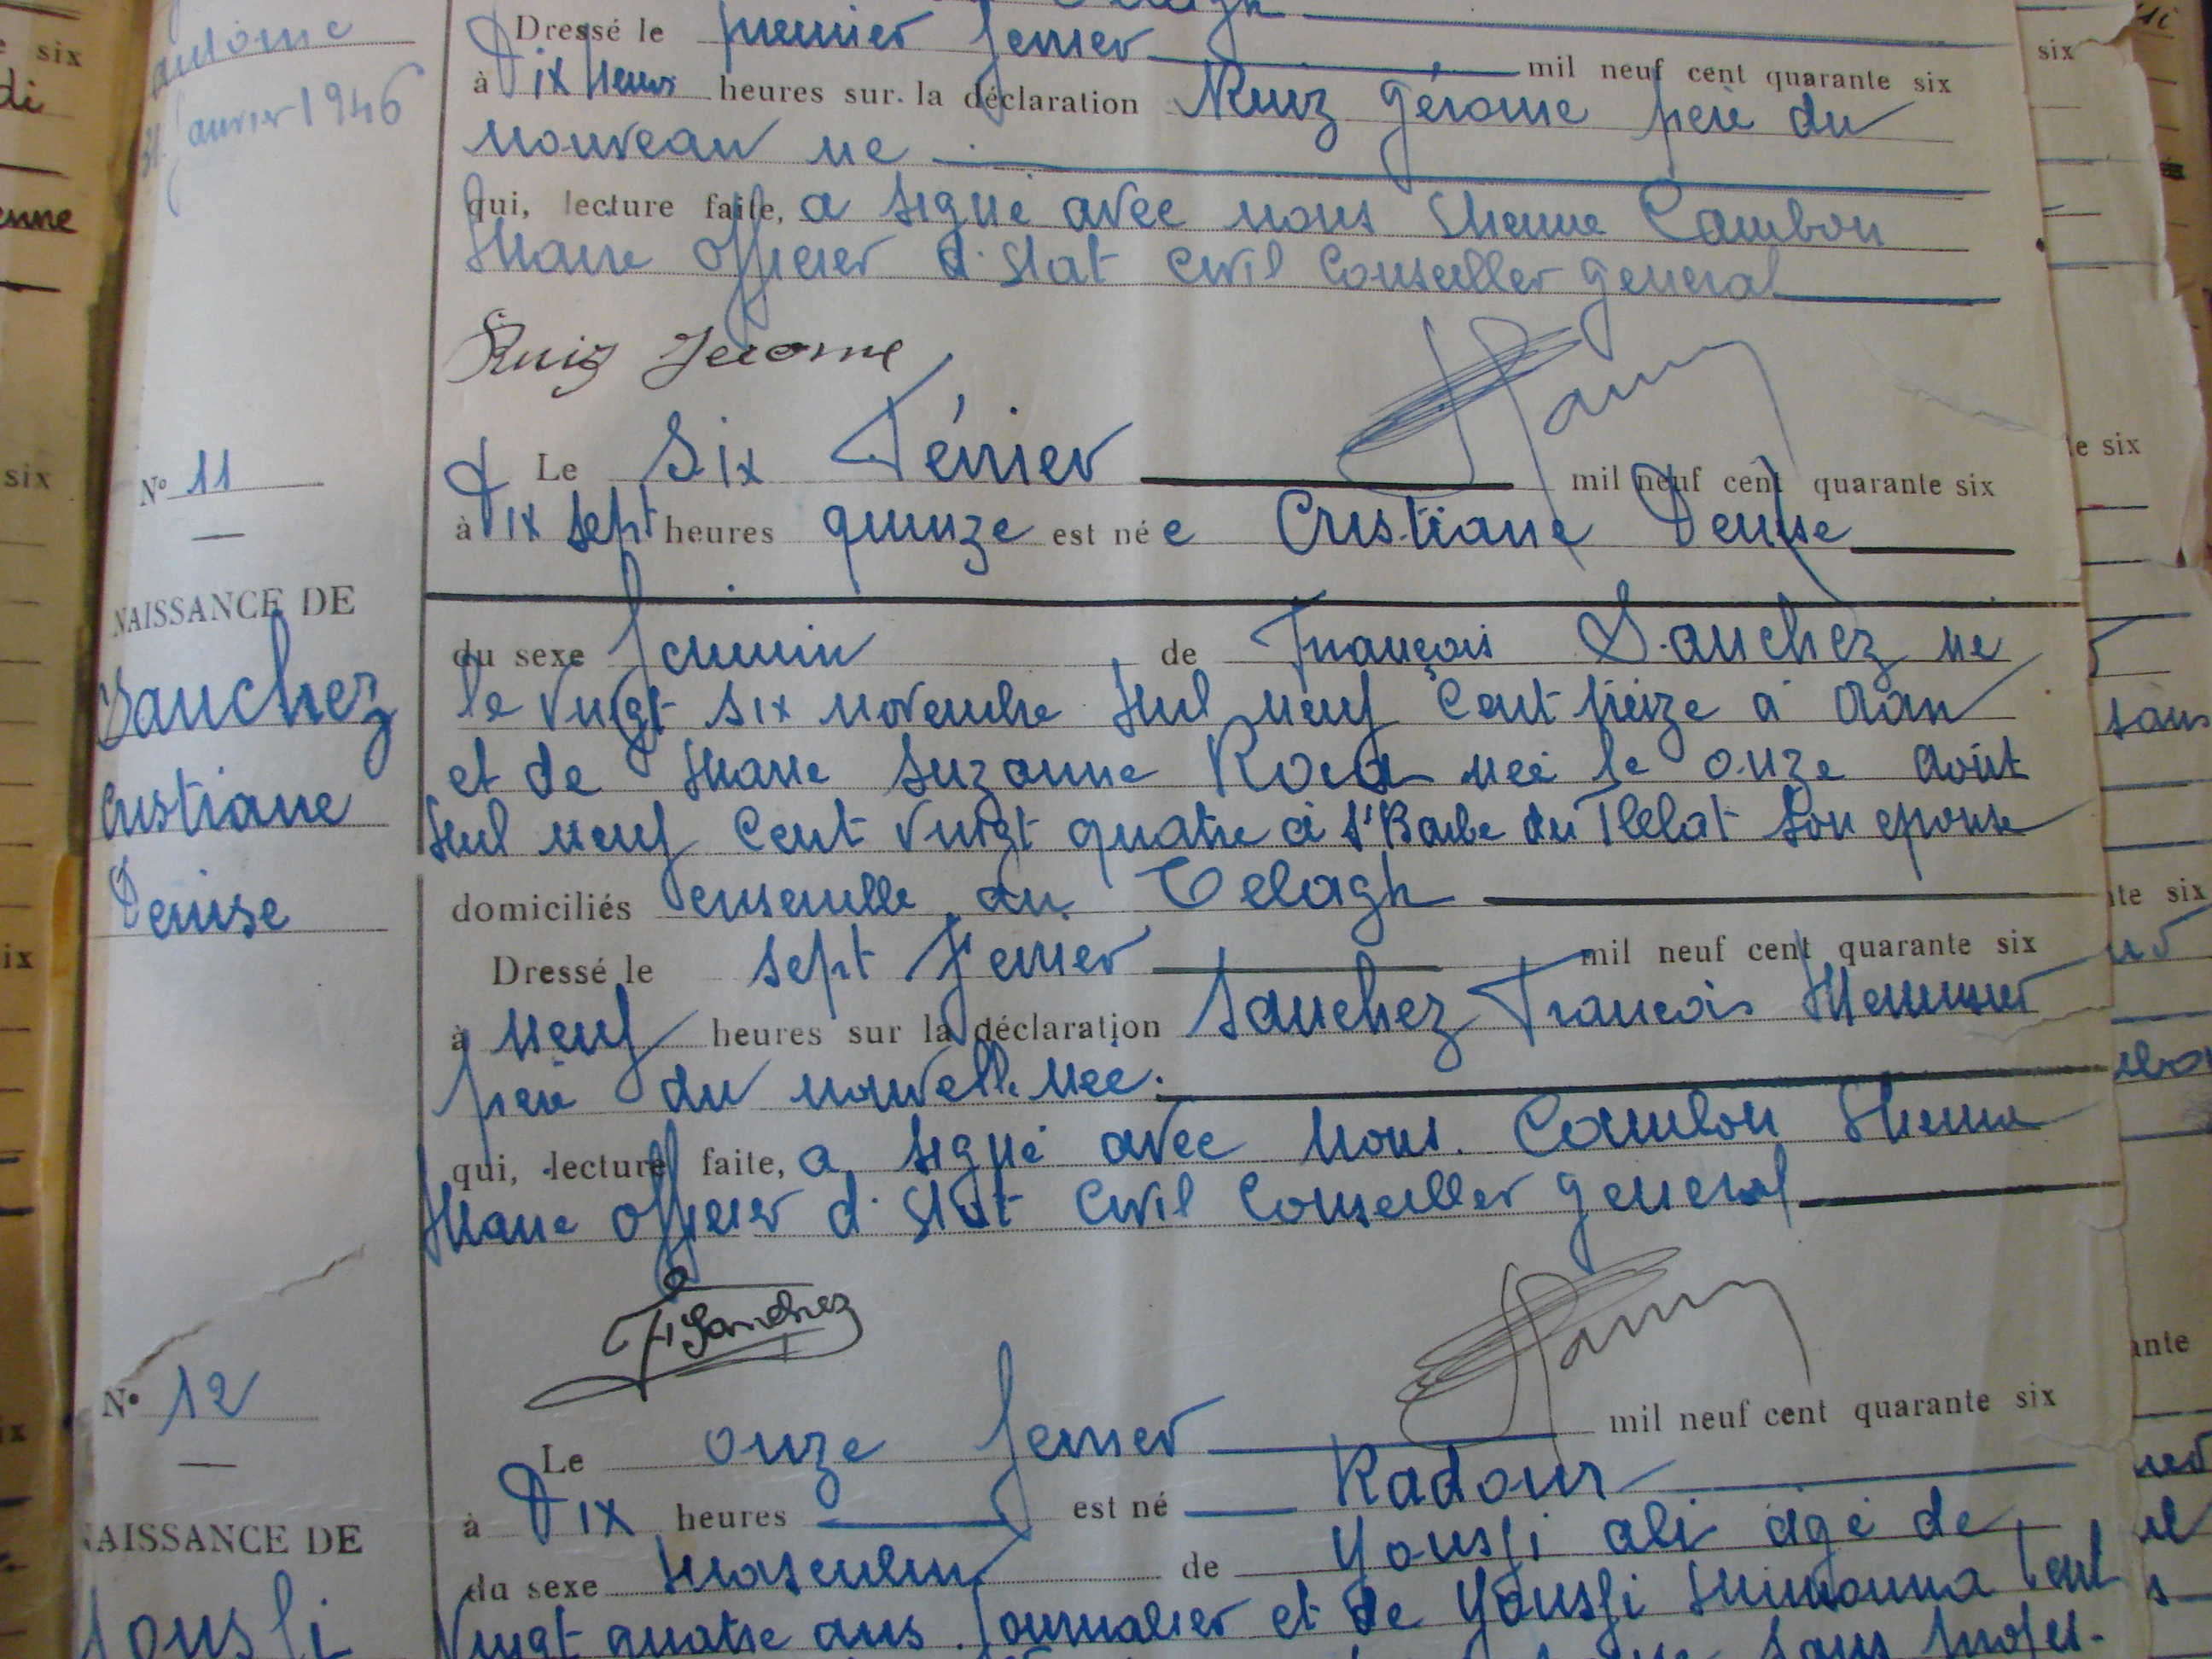 Dressé le premier février mil neuf cent quarante six
à Dix heures heures sur la déclaration Ruiz Gérome père du
nouveau né
qui, lecture faite, a signé avec nous Cambon
Maire officier d'Etat Civil Conseiller général
Ruiz Jerome
antoine
31 Janvier 1946
N° 11
NAISSANCE DE
Sanchez
Cristiane
Denise
Le Six Février mil neuf cent quarante six
à Dix sept heures quinze est née Cristiane Denise
du sexe feminin de François Sanchez né
le vingt six novembre mil neuf cent treize à Oran
et de Marie Suzanne Roca née le onze Août
mil neuf cent vingt quatre à St Barbe du Tlélat son epouse
domiciliés ensemble au Telagh
Dressé le sept février mil neuf cent quarante six
à neuf heures sur la déclaration Sanchez François
père du nouvelle née.
qui, lecture faite, a signé avec nous Cambon
Maire officier d'Etat Civil Conseiller général
F. Sanchez
N° 12
NAISSANCE DE
Youssfi
Le onze fevrier mil neuf cent quarante six
à Dix heures est né Kadour
du sexe masculin de Youssfi ali âgé de
vingt quatre ans Journalier et de Youssfi
six
six
le six
sans